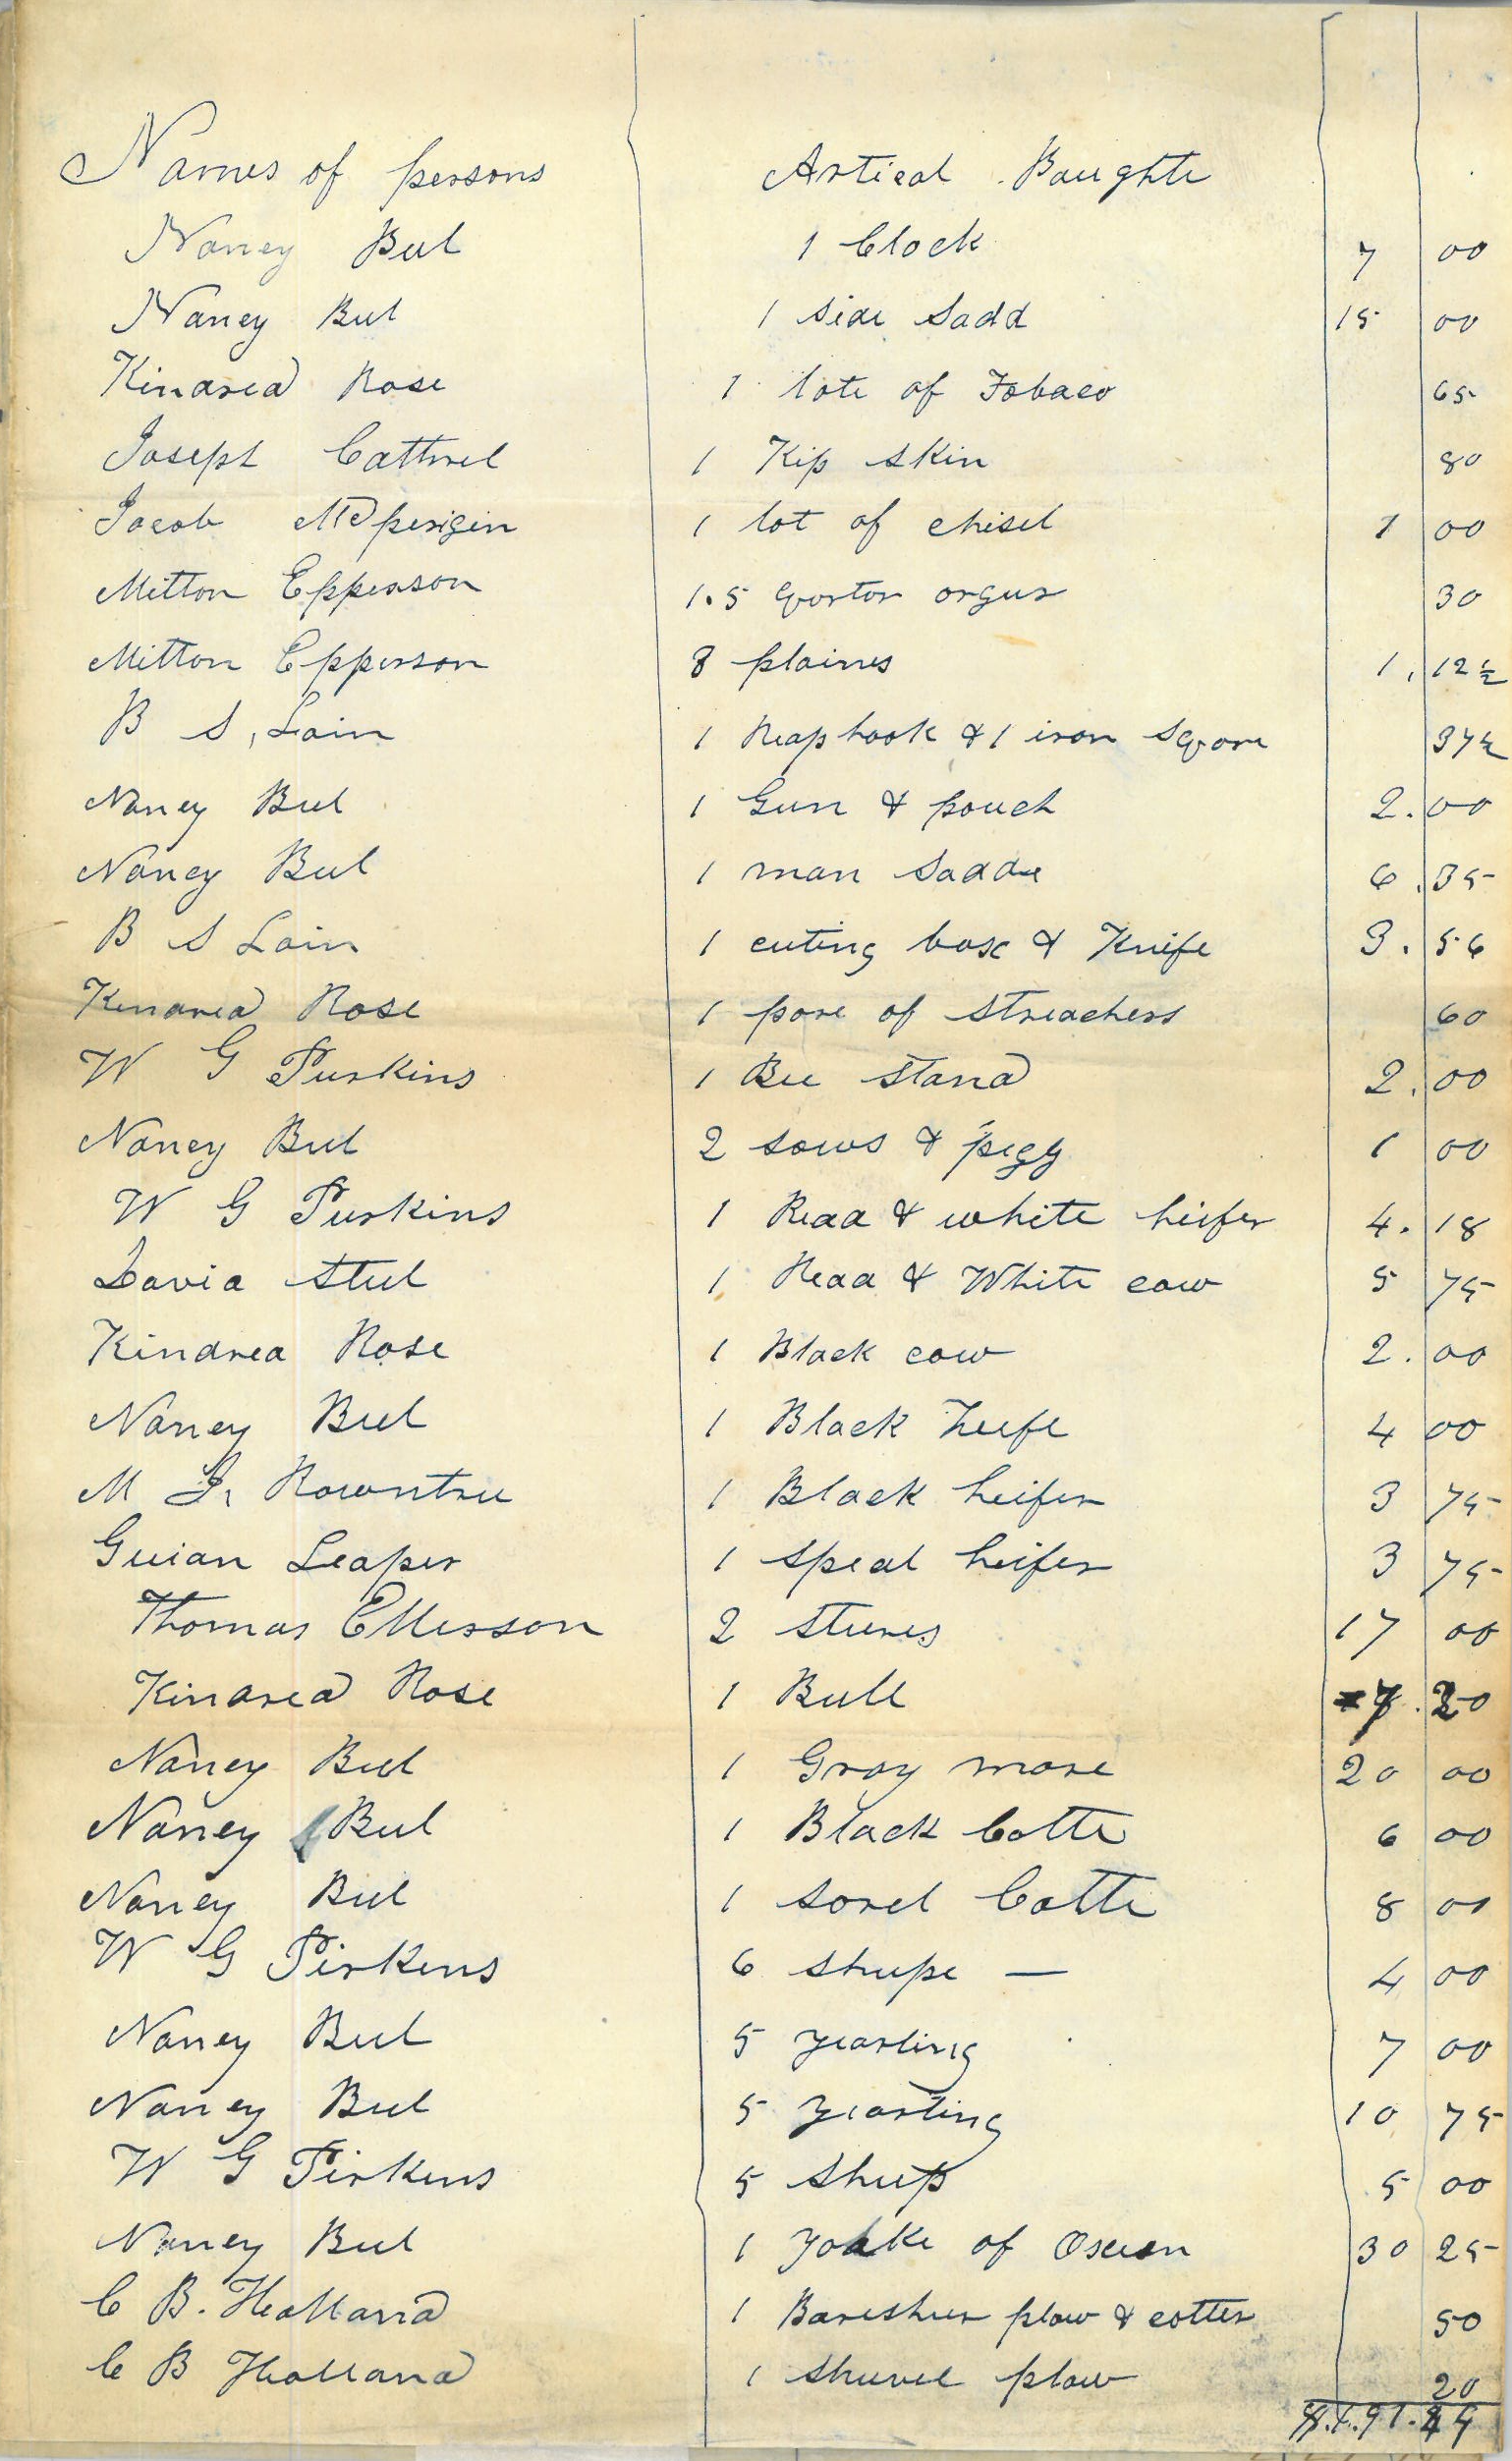 Names of persons Artical Baughte
Nancy Bul 1 Clock 7 00
Nancy Bul 1 side Sadd 15 00
Kindred Rose 1 lote of Tobaco 65
Joseph Cattrel 1 Kip skin 80
Jacob Mcperigin 1 lot of chisel 1 00
Milton Epperson 1.5 qortor orgur 30
Milton Epperson 8 plaines 1. 12 1/2
B S, Lain 1 Reap hook & 1 iron Sqare 37 1/2
Nancy Bul 1 Gun & pouch 2. 00
Nancy Bul 1 man Saddle 6. 35
B S Lain 1 cuting box & Knife 3. 56
Kindred Rose 1 pare of Streachers 60
W G Purkins 1 Bee stand 2. 00
Nancy Bul 2 sows & pigg 1 00
W G Purkins 1 Read & white heifer 4. 18
David Steel 1 Read & White cow 5 75
Kindred Rose 1 Black cow 2. 00
Nancy Bul 1 Black heife 4 00
M J, Rowntree 1 Black heifer 3 75
Guian Leaper 1 speal heifer 3 75
Thomas Ellesson 2 steeres 17 00
Kindred Rose 1 Bull 7. 20
Nancy Bul 1 Gray mare 20 00
Nancy Bul 1 Black Cotte 6 00
Nancy Bul 1 sorel Cotte 8 00
W G Pirkens 6 sheepe — 4 00
Nancy Bul 5 yearling 7 00
Nancy Bul 5 yearling 10 75
W G Pirkens 5 sheep 5 00
Nancy Bul 1 Yoake of Oxeen 30 25
C B. Holland 1 Bareshier plow & cotter 50
C B Holland 1 Shuvel plow 20